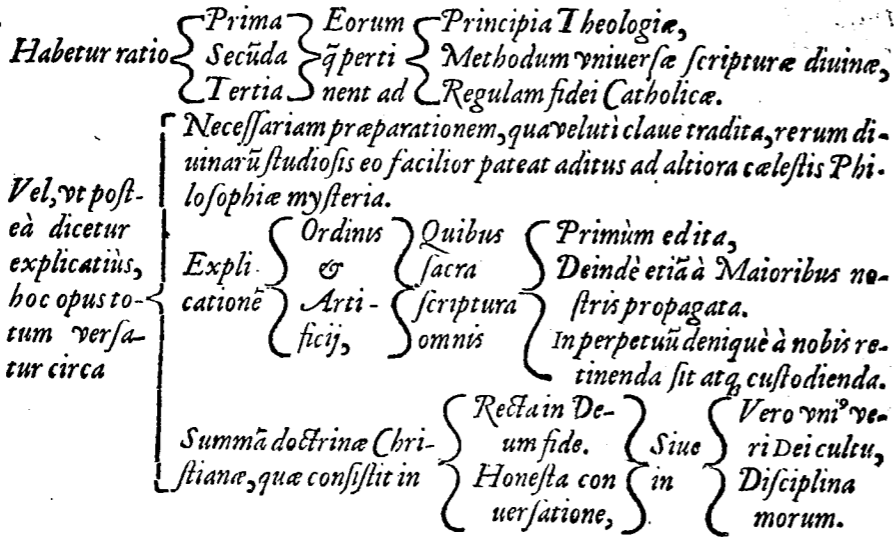 Habetur ratio
Prima
Secūda
Tertia
Eorum
q̃ perti
nent ad
Principia Theologiæ,
Methodum vniuersæ scripturæ diuinæ,
Regulam fidei Catholicæ.
Vel, vt post-
eà dicetur
explicatiùs,
hoc opus to-
tum versa-
tur circa
Necessariam præparationem, qua veluti claue tradita, rerum di-
uinarū studiosis eo facilior pateat aditus ad altiora cælestis Phi-
losophiæ mysteria.
Expli-
cationē
Ordinis
&
Arti-
ficij,
Quibus
sacra
scriptura
omnis
Primùm edita,
Deindè etiā à Maioribus no-
stris propagata.
In perpetuū deniquè à nobis re-
tinenda sit atq; custodienda.
Summā doctrinæ Chri-
stianæ, quæ consistit in
Recta in De-
um fide.
Honesta con
uersatione,
Siue
in
Vero vniꝰ ve-
ri Dei cultu,
Disciplina
morum.